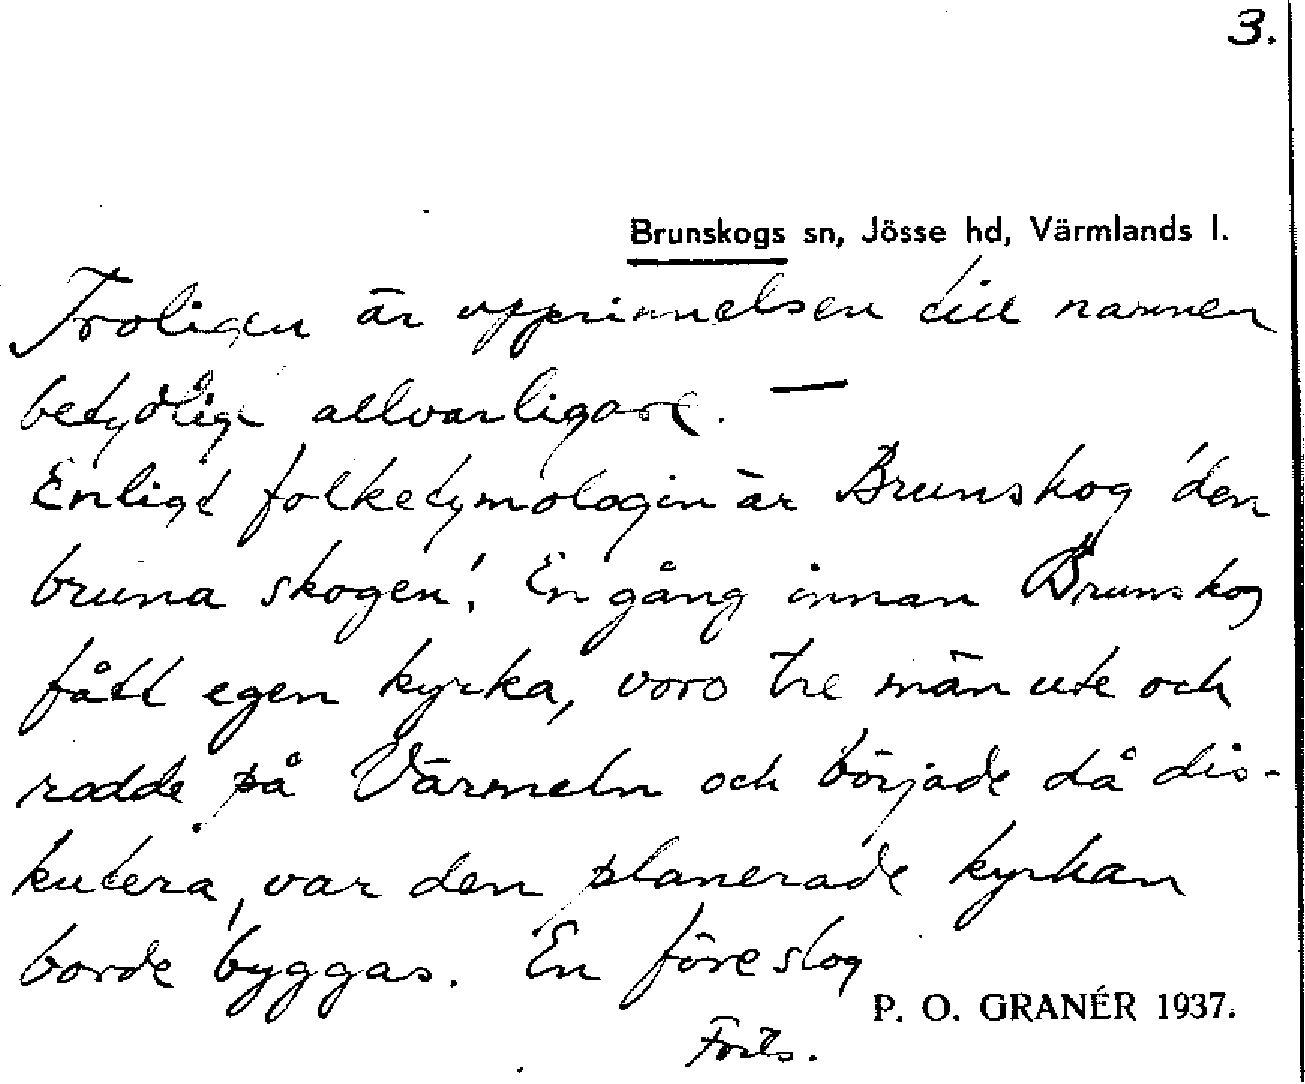 3.
Brunskogs sn, Jösse hd, Värmlands l.
Troligen är upprinnelsen till namnen
betydligt allvarligare. —
Enligt folketymologin är Brunskog 'den
bruna skogen'. En gång innan Brunskog
fått egen kyrka, voro tre män ute och
rodde på Värmeln och började då dis-
kutera, var den planerade kyrkan
borde byggas. En föreslog
P. O. GRANÉR 1937.
Forts.